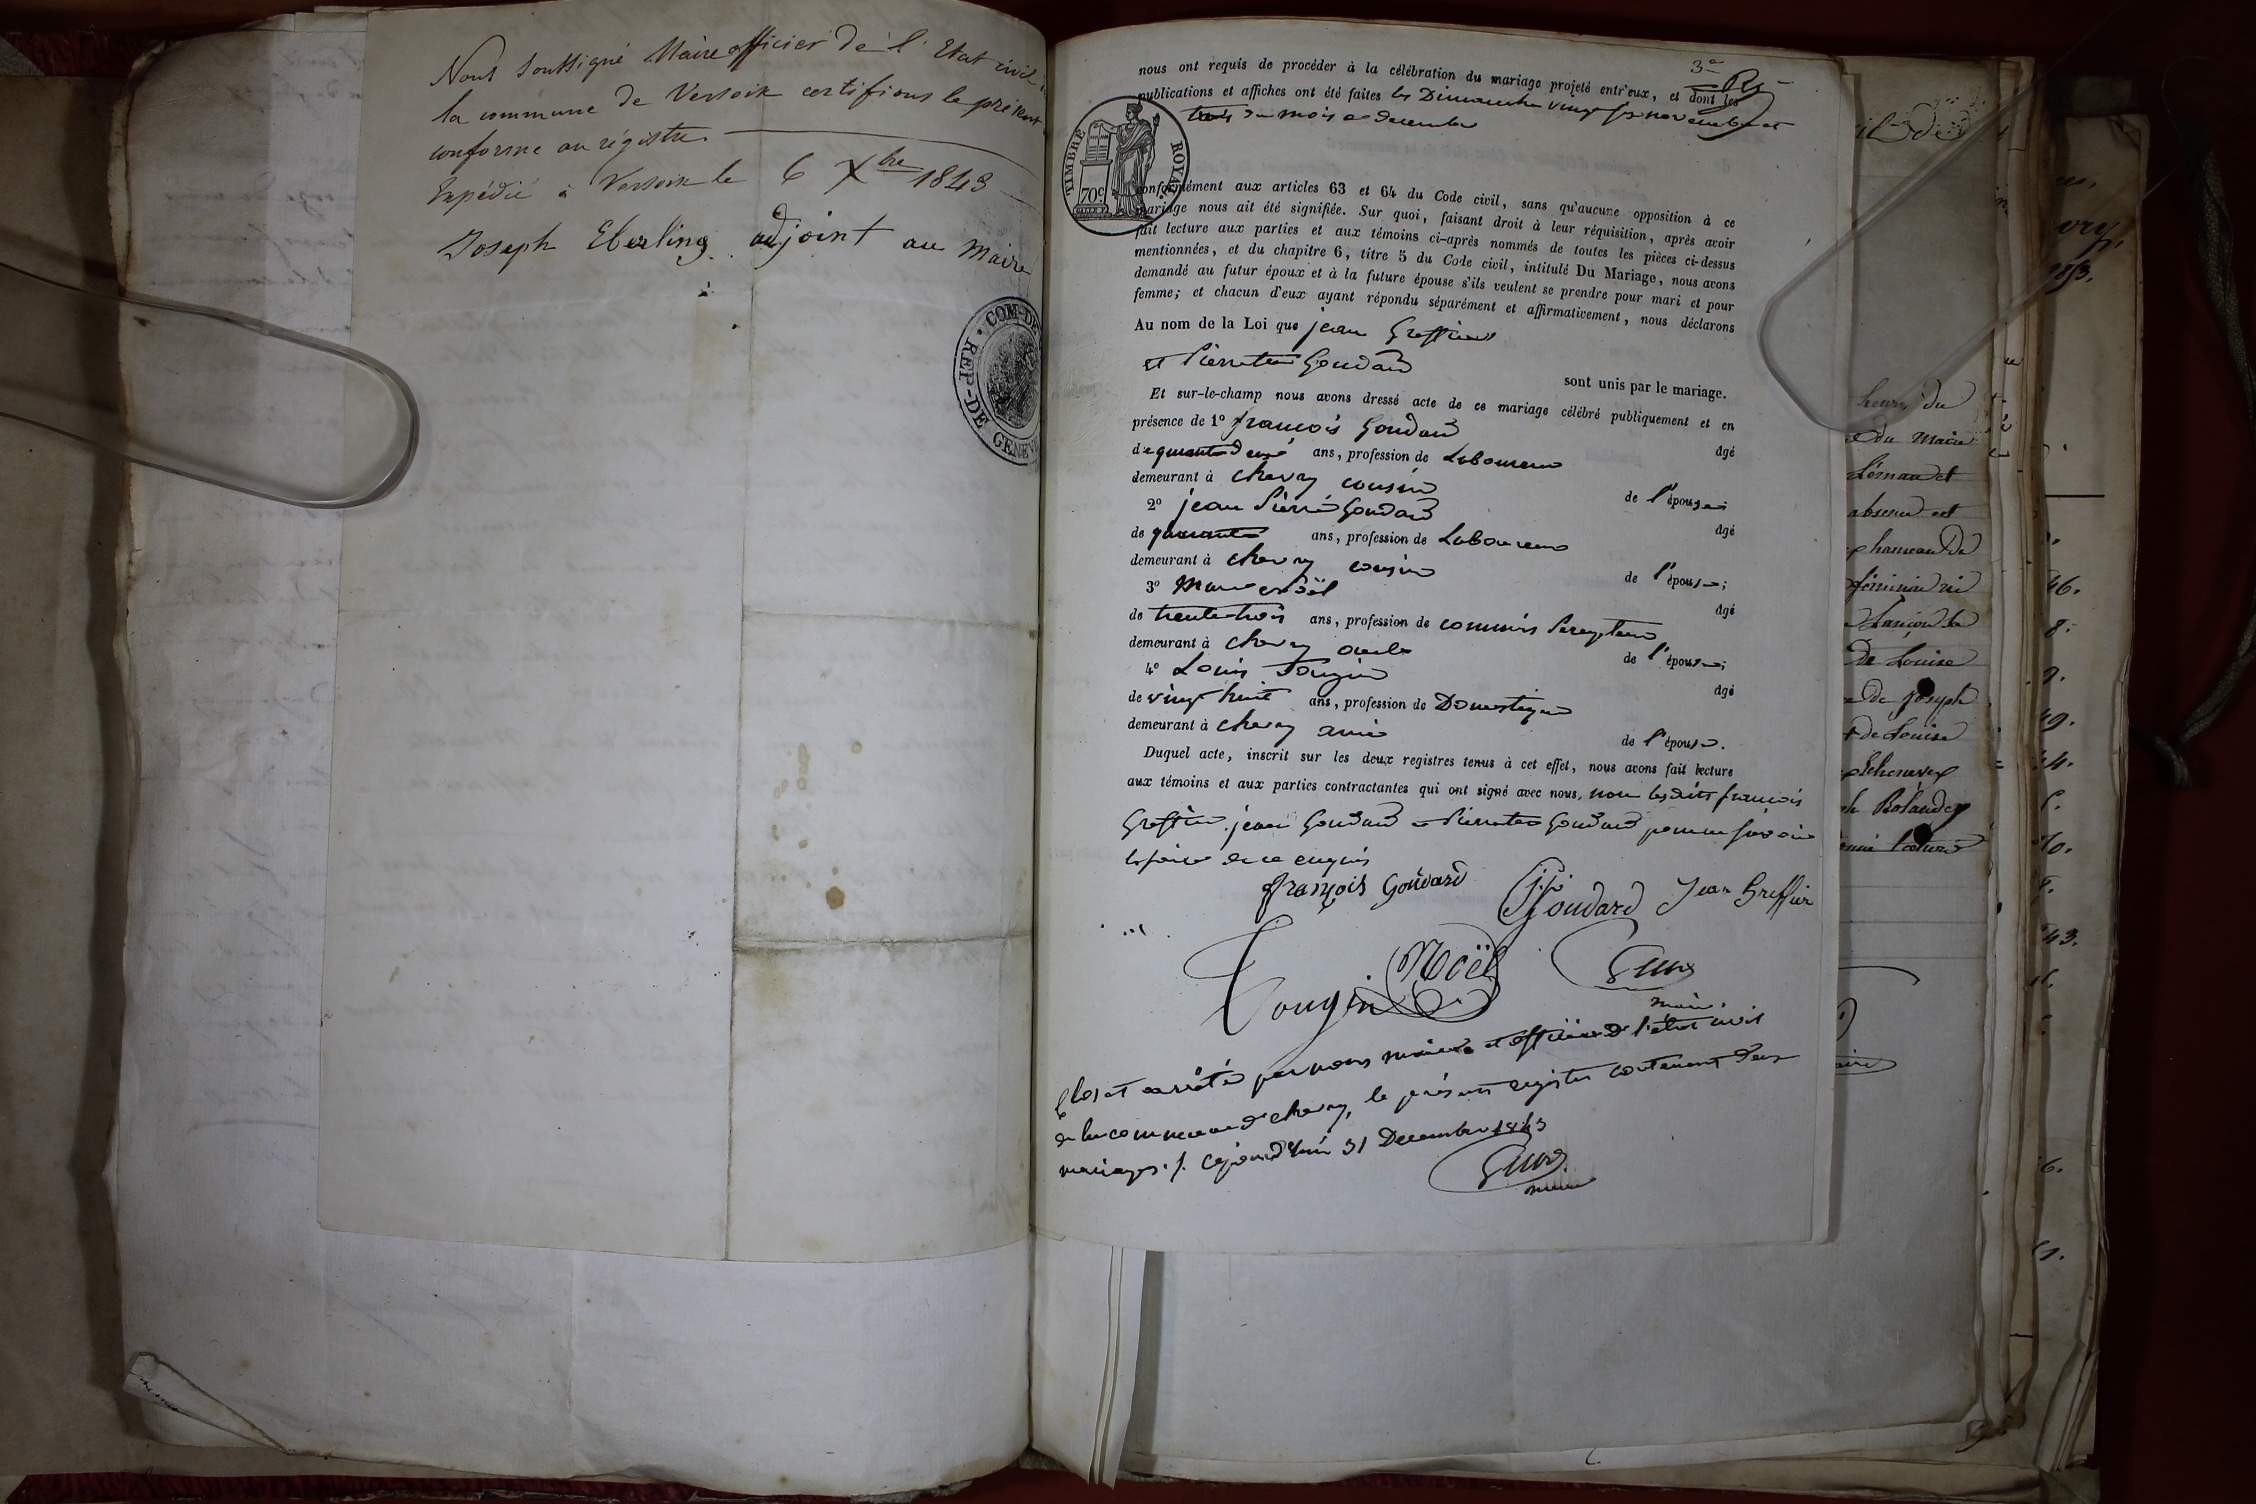 Nous soussigné Maire officier de l'Etat civil
la commune de Versoix certifions le présent
conforme au régistre.
Expédié à Versoix le 6 Xbre 1843
Joseph Eberling adjoint au Maire
COM-DE
REP-DE GENEV
3e
nous ont requis de procéder à la célébration du mariage projeté entr'eux, et dont les
publications et affiches ont été faites les Dimanche vingt six novembre et
trois du mois de decembre
TIMBRE ROYAL
70c
conformément aux articles 63 et 64 du Code civil, sans qu'aucune opposition à ce
mariage nous ait été signifiée. Sur quoi, faisant droit à leur réquisition, après avoir
fait lecture aux parties et aux témoins ci-après nommés de toutes les pièces ci-dessus
mentionnées, et du chapitre 6, titre 5 du Code civil, intitulé Du Mariage, nous avons
demandé au futur époux et à la future épouse s'ils veulent se prendre pour mari et pour
femme; et chacun d'eux ayant répondu séparément et affirmativement, nous déclarons
Au nom de la Loi que jean Greffier
et Pierrette Goudard
sont unis par le mariage.
Et sur-le-champ nous avons dressé acte de ce mariage célébré publiquement et en
présence de 1° françois Goudard
âgé
de ans, profession de Laboureur
demeurant à chevry cousin
de l'épouse;
2° jean Pierre Goudard
âgé
de quarante ans, profession de Laboureur
demeurant à chevry cousin
de l'épouse;
3° Noël
âgé
de trente trois ans, profession de commis Percepteur
demeurant à chevry oncle
de l'épouse;
4° Louis Tougin
âgé
de vingt huit ans, profession de Domestique
demeurant à chevry amie
de l'épouse.
Duquel acte, inscrit sur les deux registres tenus à cet effet, nous avons fait lecture
aux témoins et aux parties contractantes qui ont signé avec nous, non les dits françois
Greffier, jean Goudard et Pierrette Goudard pour ne savoir
le faire de ce enquis
François Goudard
JP Goudard Jean Greffier
Tougin Noël
maire
Clos et arrêté par nous maire et officier de l'état civil
de la commune de chevry, le présent registre contenant deux
mariages. /. Cejourd'hui 31 Decembre 1843
maire
heures du
du Maire
Léman et
absence et
hameau de
de Louise
de Joseph
de Louise
Echenevex
46.
8.
9.
49.
44.
43.
6.